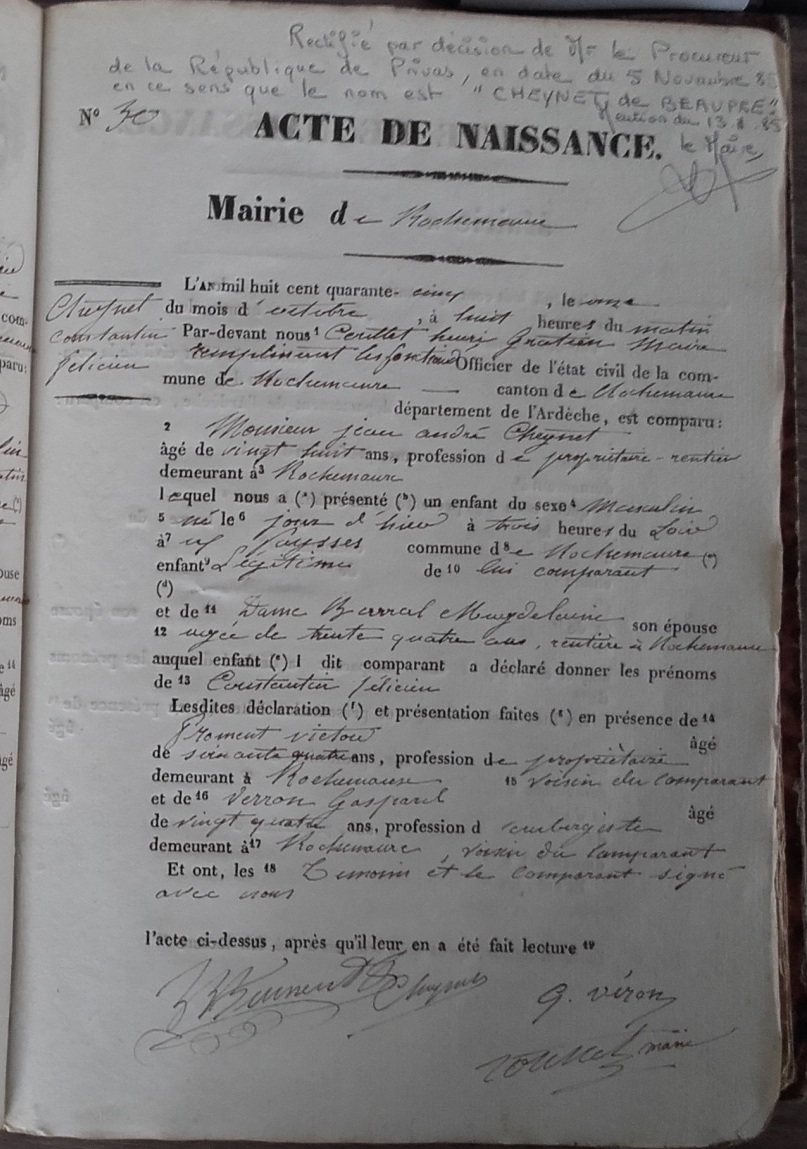 Rectifié par décision de Mr le Procureur
de la République de Privas, en date du 5 Novembre 85
en ce sens que le nom est "CHEYNET de BEAUPRE"
Mention du 13 85
le Maire
N° 30
ACTE DE NAISSANCE.
Mairie de Rochemaure
Cheynet
constantin
félicien
L'AN mil huit cent quarante-cinq, le onze
du mois d'octobre, à huit heures du matin
Par-devant nous ¹ henri Gratien Maire
remplissant les fonctions Officier de l'état civil de la com-
mune de Rochemaure canton de Rochemaure
département de l'Ardèche, est comparu:
² Monsieur jean andré Cheynet
âgé de vingt huit ans, profession de propriétaire-rentier
demeurant à³ Rochemaure
lequel nous a (ᵃ) présenté (ᵇ) un enfant du sexe⁴ Masculin
⁵ né le⁶ jour d'hier à trois heures du soir
à⁷ commune d⁸e Rochemaure (ᶜ)
enfant⁹ Légitime de ¹⁰ lui comparant
(ᵈ)
et de ¹¹ Dame Barral Magdelaine son épouse
¹² agée de trente quatre ans, rentière à Rochemaure
auquel enfant (ᵉ) l dit comparant a déclaré donner les prénoms
de ¹³ Constantin félicien
Lesdites déclaration (ᶠ) et présentation faites (ᵍ) en présence de ¹⁴
froment victor âgé
de soixante quatre ans, profession de propriétaire
demeurant à Rochemaure ¹⁵ voisin du comparant
et de ¹⁶ Verron Gaspard âgé
de vingt quatre ans, profession d aubergiste
demeurant à¹⁷ Rochemaure, voisin du comparant
Et ont, les ¹⁸ Témoins et le comparant signé
avec nous
l'acte ci-dessus, après qu'il leur en a été fait lecture ¹⁹
Cheynet
G. véron
maire